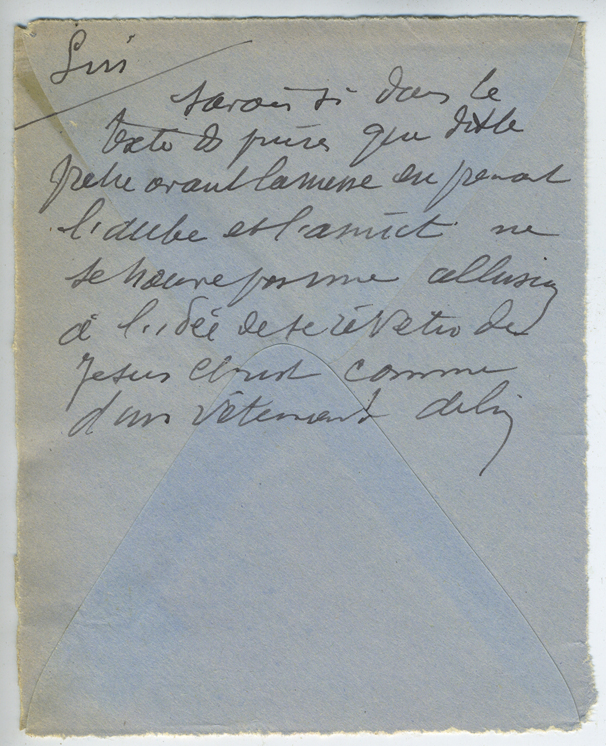 Savoir si dans le
texte des prières que dit le
prêtre avant la messe en prenant
l'aube et l'amict ne
se trouve pas une allusion
à l'idée de se revêtir de
Jesus Christ comme
d'un vêtement de lin